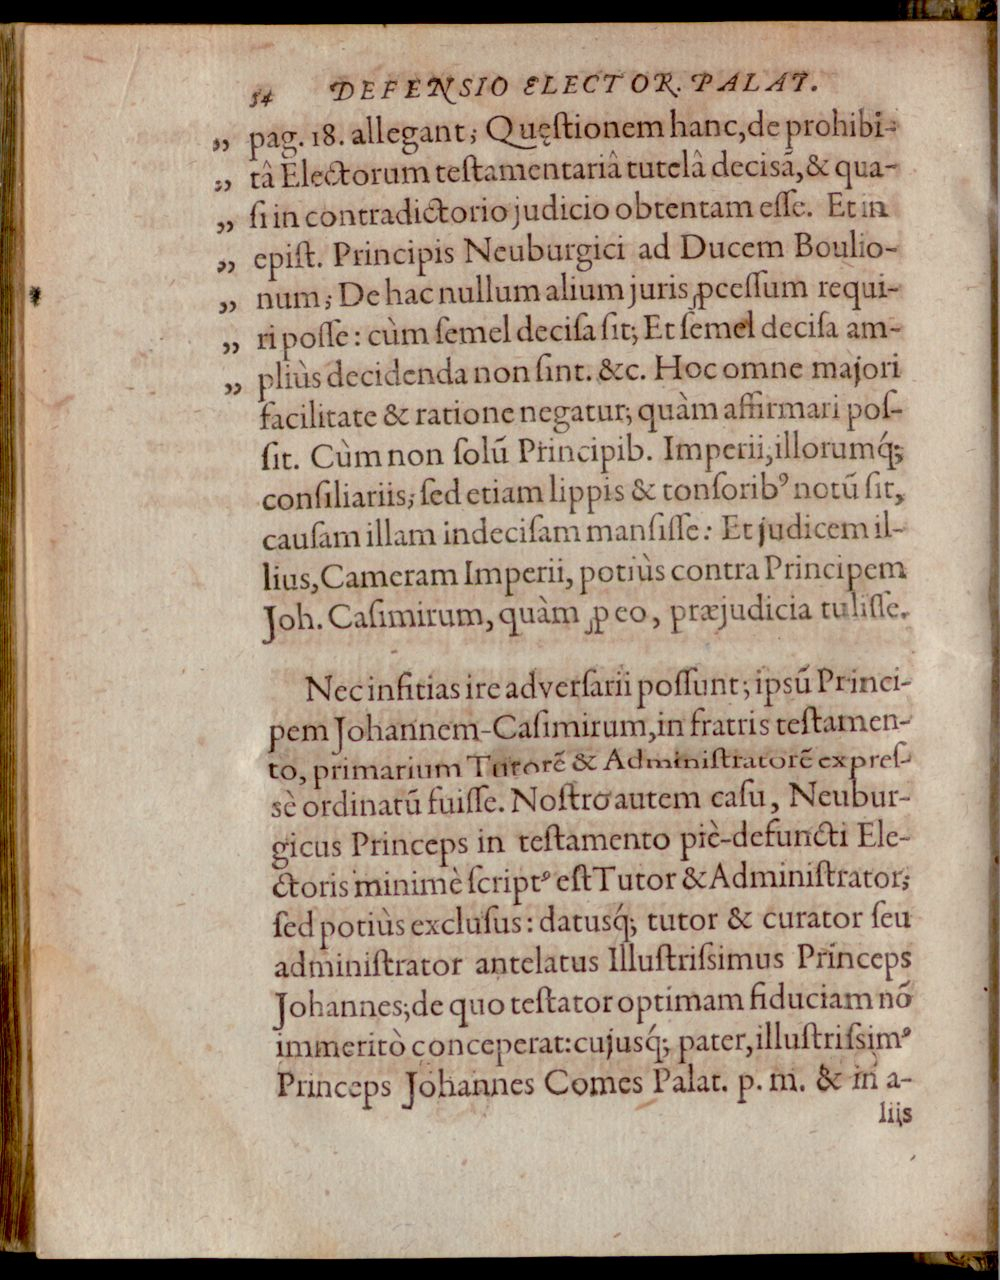 54 DEFENSIO ELECTOR. PALAT.
„ pag. 18. allegant; Quęſtionem hanc, de prohibi-
„ tâ Electorum teſtamentariâ tutelâ decisã, & qua-
„ ſi in contradictorio judicio obtentam eſſe. Et in
„ epiſt. Principis Neuburgici ad Ducem Boulio-
„ num; De hac nullum alium juris ꝓceſſum requi-
„ ri poſſe: cùm ſemel deciſa ſit; Et ſemel deciſa am-
„ pliùs decidenda non ſint. &c. Hoc omne majori
facilitate & ratione negatur, quàm affirmari poſ-
ſit. Cùm non ſolũ Principib. Imperii, illorumq́;
conſiliariis, ſed etiam lippis & tonſoribꝰ notũ ſit,
cauſam illam indeciſam manſiſſe: Et judicem il-
lius, Cameram Imperii, potiùs contra Principem
Joh. Caſimirum, quàm ꝓ eo, præjudicia tuliſſe.
Nec inſitias ire adverſarii poſſunt; ipsũ Princi-
pem Johannem-Caſimirum, in fratris teſtamen-
to, primarium Tutorẽ & Adminiſtratorẽ expreſ-
sè ordinatũ fuiſſe. Noſtro autem caſu, Neubur-
gicus Princeps in teſtamento piè-defuncti Ele-
ctoris minimè ſcriptꝰ eſt Tutor & Adminiſtrator;
ſed potiùs excluſus: datusq́; tutor & curator ſeu
adminiſtrator antelatus Illuſtriſsimus Princeps
Johannes; de quo teſtator optimam fiduciam nõ
immeritò conceperat: cujusq́; pater, illuſtriſsimꝰ
Princeps Johannes Comes Palat. p. m. & in a-
liis